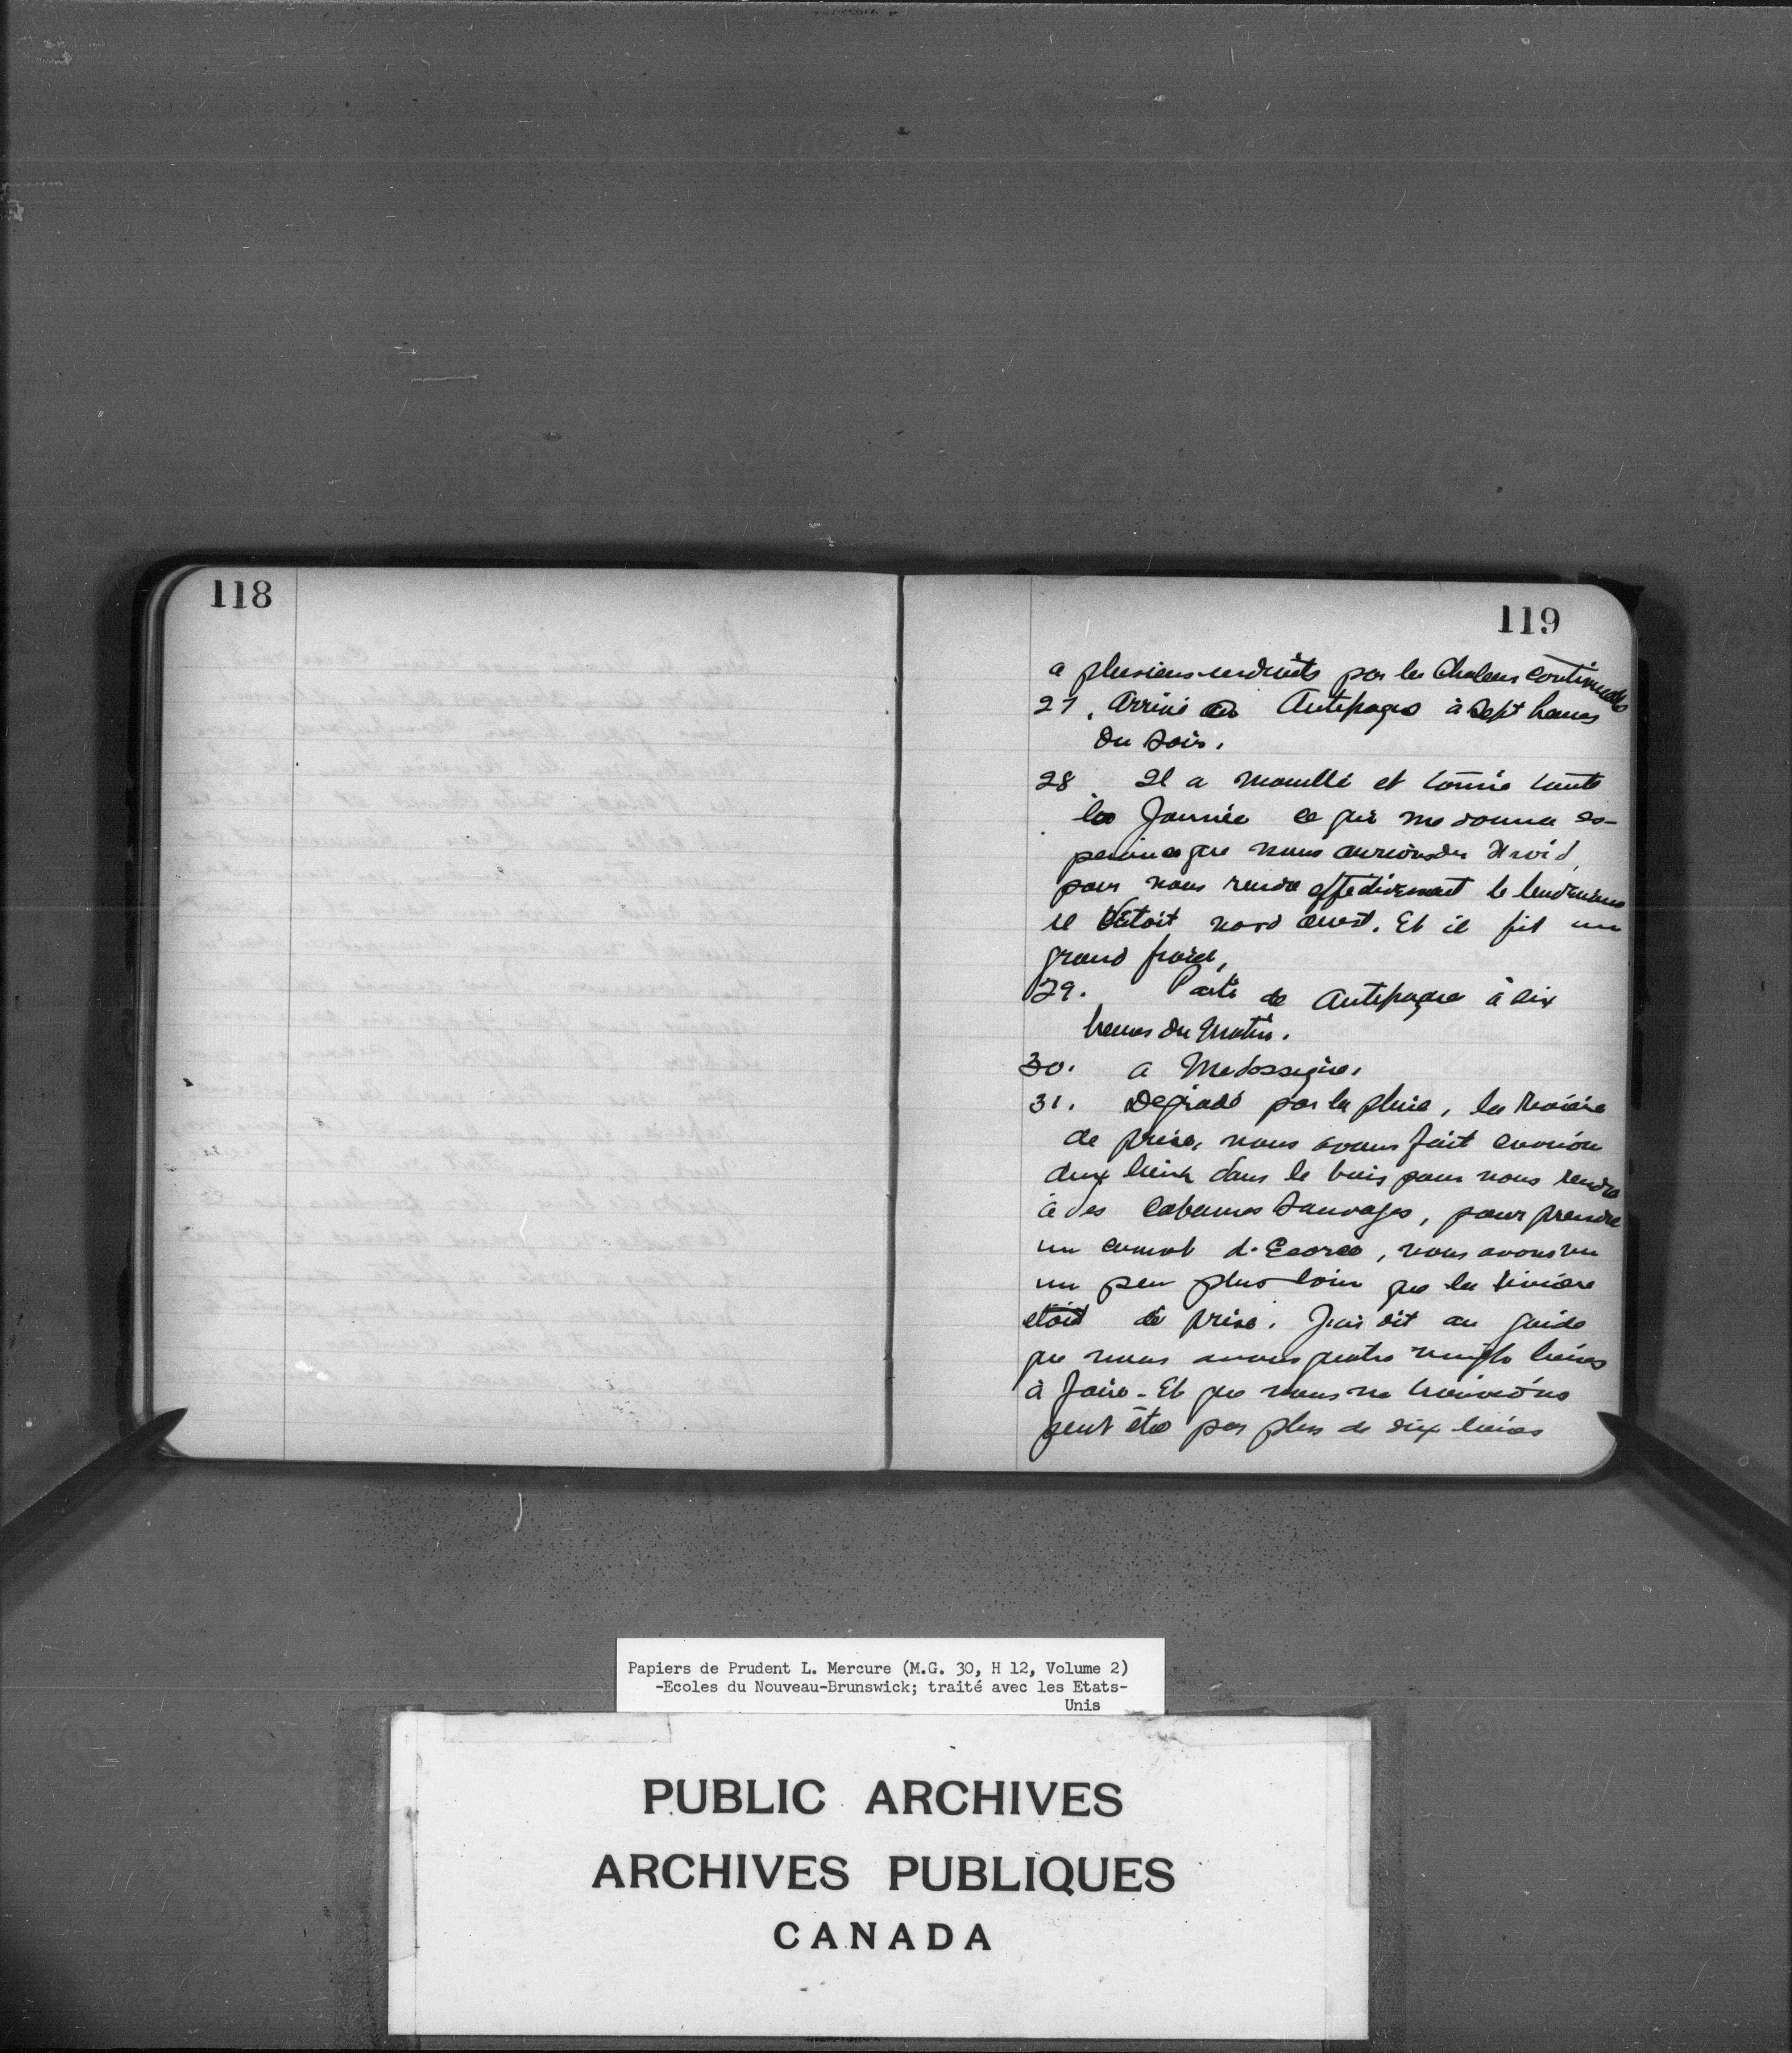 118
119
a plusieurs endroits par les chaleurs continuels
27. Arrivé au Antepagas à Sept heures
du soir.
28 Il a mouillé et tonné toute
la Journée ce qui me donna es-
perance que nous aurions du froid,
pour nous rendre effectivement le lendemain
il étoit nord ouest. Et il fit un
grand froid,
29. Parti de Antepague à dix
heures du Matin.
30. a Medossegise.
31. Degradé par la pluie, la Rivière
de prise, nous avons fait environ
deux lieux dans le bois pour nous rendre
à des Cabannes Sauvages, pour prendre
un canot d'Ecorce, nous avons vu
un peu plus loin que la rivière
etoit de prise. J'ai dit au guide
que nous avons quatre vingts lieües
à faire - Et que nous ne
peut être pas plus de dix lieües
Papiers de Prudent L. Mercure (M.G. 30, H 12, Volume 2)
-Ecoles du Nouveau-Brunswick; traité avec les Etats-
Unis
PUBLIC ARCHIVES
ARCHIVES PUBLIQUES
CANADA